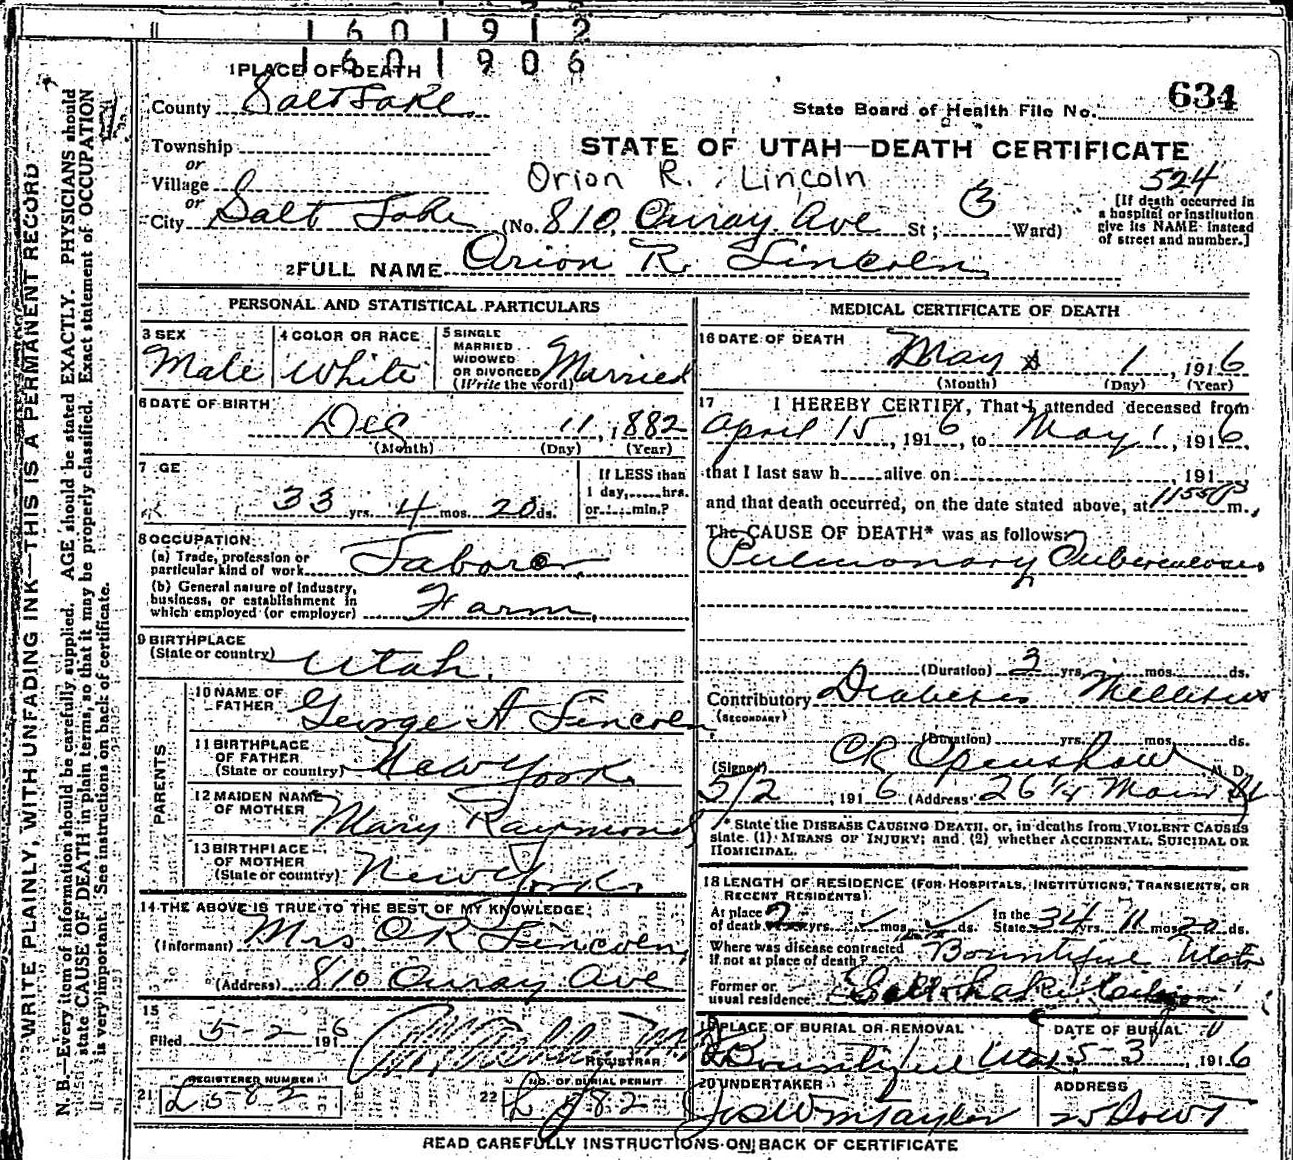 1 6 0 1 9 1 2
1 6 0 1 9 0 6
1 PLACE OF DEATH
County Salt Lake
State Board of Health File No. 634
Township
or
STATE OF UTAH—DEATH CERTIFICATE
Village
Orion R. Lincoln
524
or
City Salt Lake (No. 810 Ouray Ave St; 3 Ward)
[If death occurred in
a hospital or institution
give its NAME instead
of street and number.]
2 FULL NAME Orion R. Lincoln
PERSONAL AND STATISTICAL PARTICULARS
3 SEX
Male
4 COLOR OR RACE
White
5 SINGLE
MARRIED
WIDOWED
OR DIVORCED
(Write the word)
Married
6 DATE OF BIRTH
Dec 11, 1882
(Month) (Day) (Year)
7 GE
33 yrs. 4 mos. 20 ds.
If LESS than
1 day, hrs.
or min.?
8 OCCUPATION
(a) Trade, profession or
particular kind of work Laborer
(b) General nature of industry,
business, or establishment in
which employed (or employer) Farm
9 BIRTHPLACE
(State or country) Utah.
PARENTS
10 NAME OF
FATHER George A Lincoln
11 BIRTHPLACE
OF FATHER
(State or country) New York
12 MAIDEN NAME
OF MOTHER Mary Raymond
13 BIRTHPLACE
OF MOTHER
(State or country) New York
14 THE ABOVE IS TRUE TO THE BEST OF MY KNOWLEDGE
(Informant) Mrs O R Lincoln
(Address) 810 Ouray Ave
15
Filed 5-2 1916
REGISTRAR
21 REGISTERED NUMBER
L 582
22 NO. OF BURIAL PERMIT
L 582
MEDICAL CERTIFICATE OF DEATH
16 DATE OF DEATH
May 1, 1916
(Month) (Day) (Year)
17 I HEREBY CERTIFY, That I attended deceased from
April 15, 1916, to May 1, 1916,
that I last saw h alive on , 191
and that death occurred, on the date stated above, at 1155 P m.
The CAUSE OF DEATH* was as follows:
Pulmonary Tuberculosis
(Duration) 3 yrs. mos. ds.
Contributory Diabetes Mellitus
(SECONDARY)
(Duration) yrs. mos. ds.
(Signed) C R Openshaw, M. D.
5/2, 1916 (Address) 26 1/4 Main St
* State the DISEASE CAUSING DEATH, or, in deaths from VIOLENT CAUSES
state (1) MEANS OF INJURY; and (2) whether ACCIDENTAL, SUICIDAL OR
HOMICIDAL.
18 LENGTH OF RESIDENCE (FOR HOSPITALS, INSTITUTIONS, TRANSIENTS, OR
RECENT RESIDENTS)
At place
of death yrs. mos. ds.
In the
State 34 yrs. 11 mos. 20 ds.
Where was disease contracted
If not at place of death? Bountiful Utah
Former or
usual residence
19 PLACE OF BURIAL OR REMOVAL
Bountiful Utah
DATE OF BURIAL
5-3, 1916
20 UNDERTAKER
Jos Wm Taylor
ADDRESS
READ CAREFULLY INSTRUCTIONS ON BACK OF CERTIFICATE
WRITE PLAINLY, WITH UNFADING INK—THIS IS A PERMANENT RECORD
N. B.—Every item of information should be carefully supplied. AGE should be stated EXACTLY. PHYSICIANS should
state CAUSE OF DEATH in plain terms, so that it may be properly classified. Exact statement of OCCUPATION
is very important. See instructions on back of certificate.